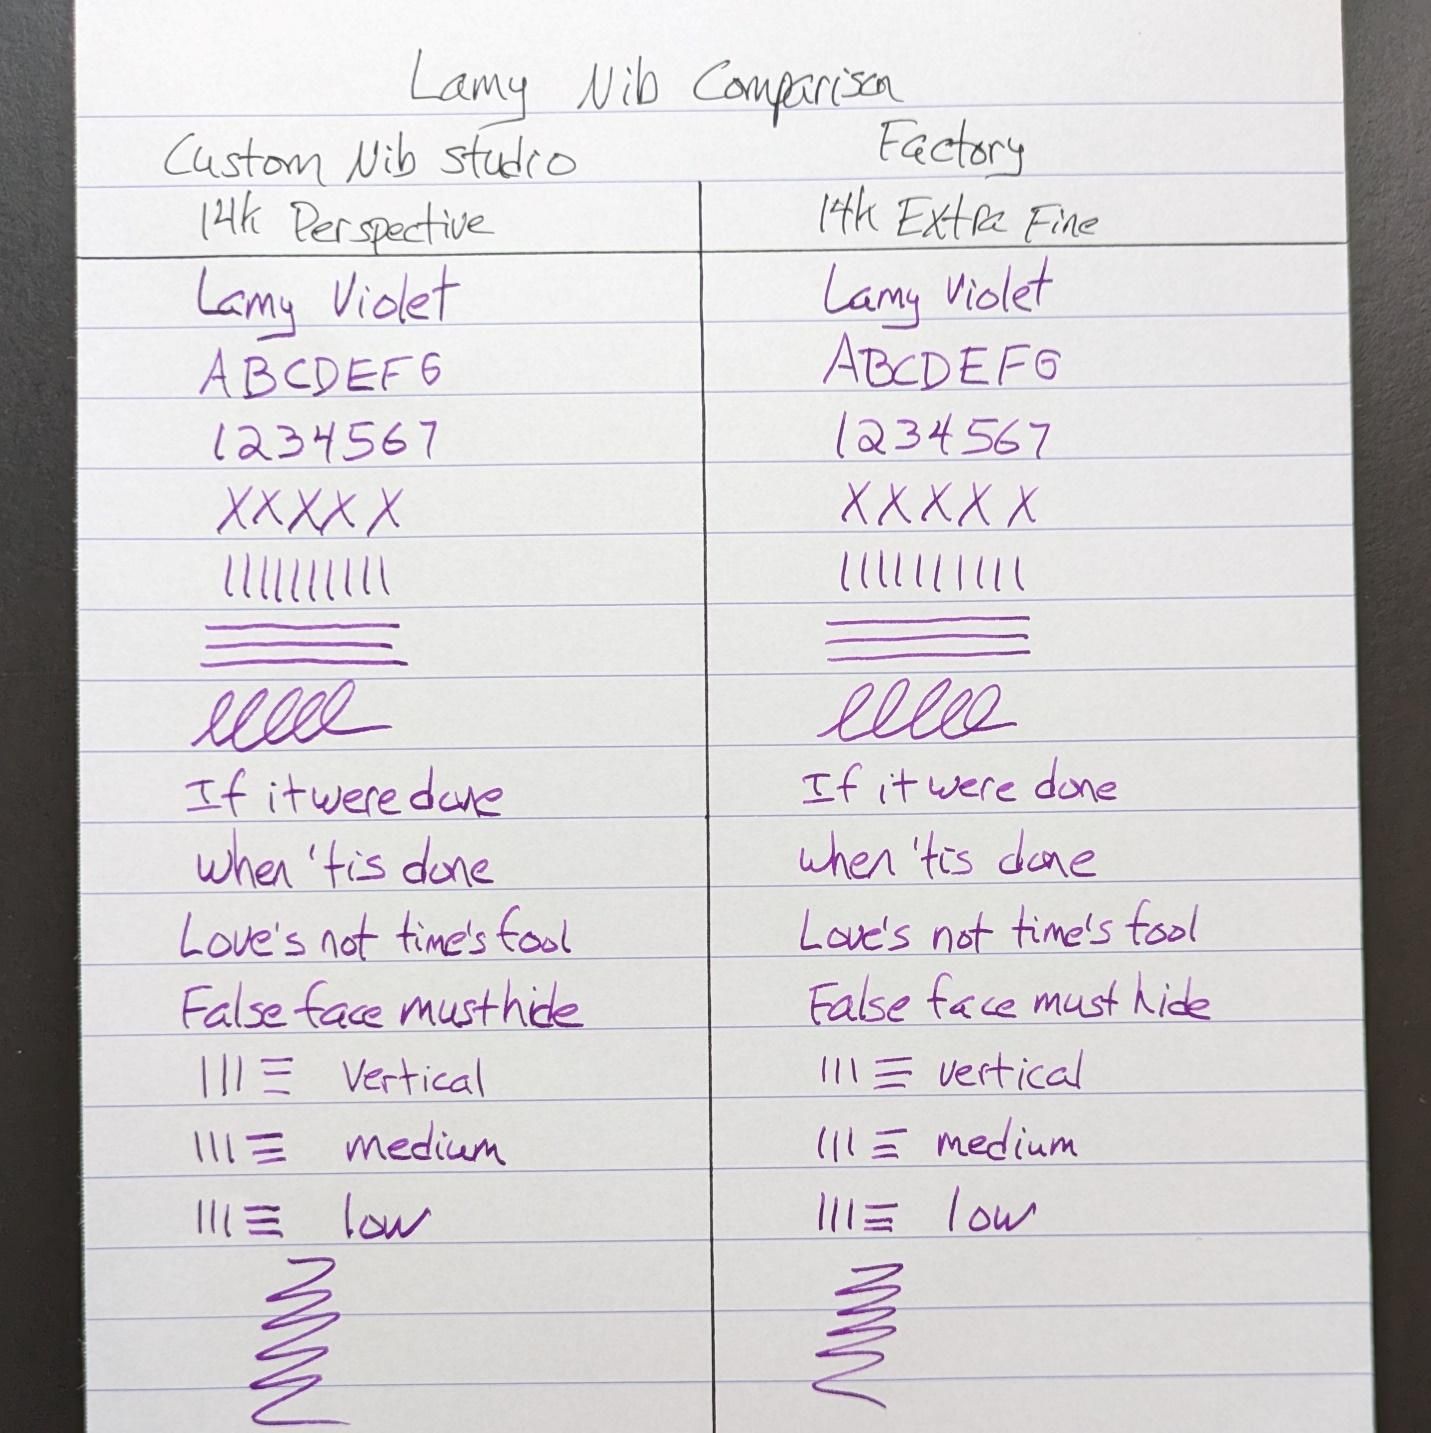 Lamy Nib Comparison
Custom Nib Studio
Factory
14k Perspective
14k Extra Fine
Lamy Violet
Lamy Violet
ABCDEFG
ABCDEFG
1234567
1234567
XXXXX
XXXXX
If it were done
If it were done
when 'tis done
when 'tis done
Love's not time's fool
Love's not time's fool
False face must hide
False face must hide
Vertical
vertical
medium
medium
low
low